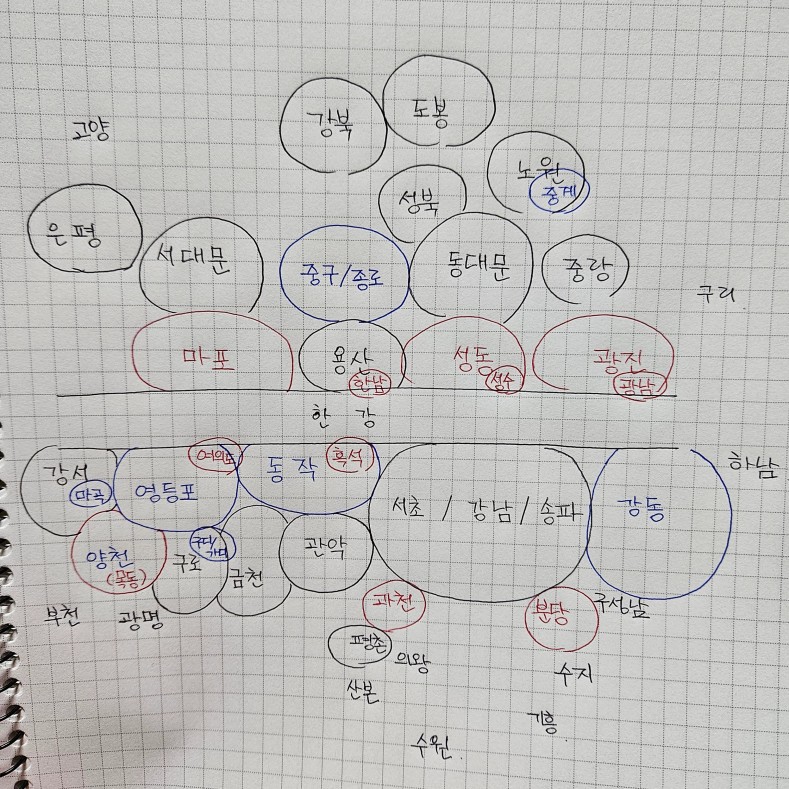 고양
강북
도봉
노원
중계
성북
은평
서대문
중구/종로
동대문
중랑
구리
마포
용산
한남
성동
성수
광진
광남
한 강
강서
마곡
영등포
여의도
동작
흑석
서초 / 강남 / 송파
강동
하남
양천
(목동)
구로
구디/가디
금천
관악
부천
광명
과천
평촌
의왕
산본
분당
구성남
수지
기흥
수원